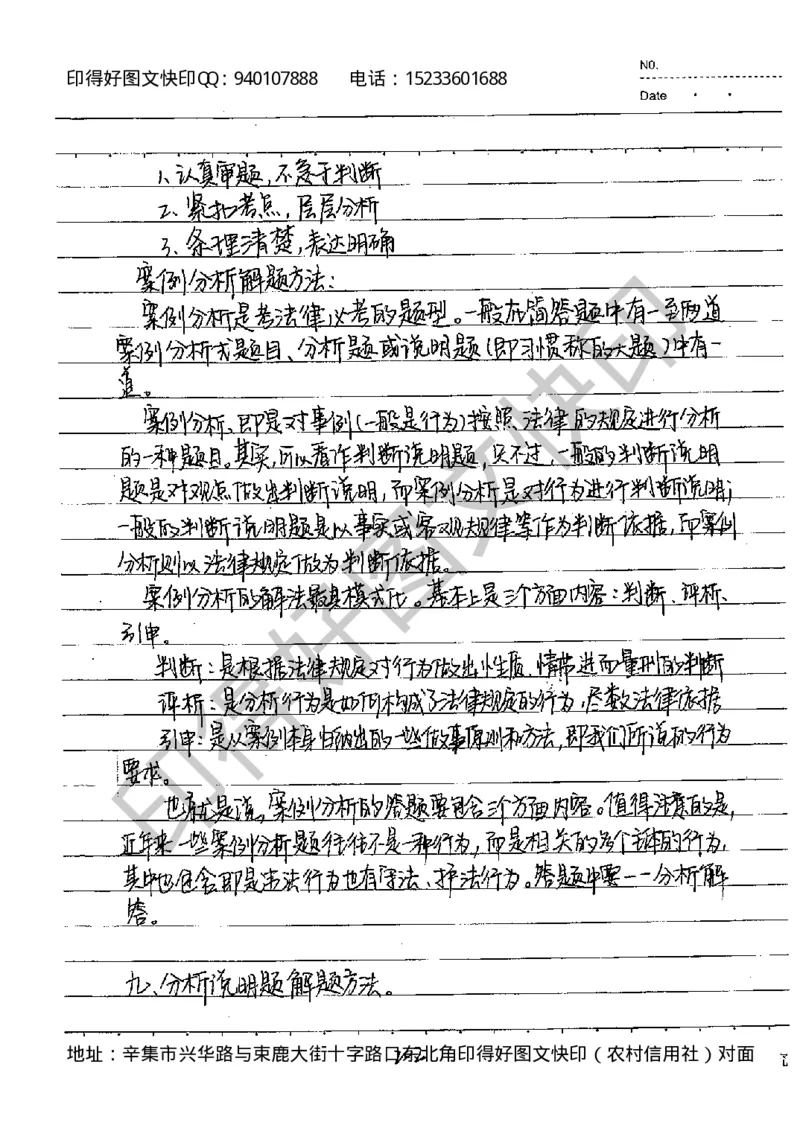 印得好图文快印QQ：940107888 电话：15233601688
NO.
Date
1、认真审题，不急于判断
2、紧扣考点，层层分析
3、条理清楚，表达明确
案例分析解题方法：
案例分析是考法律必考的题型。一般在简答题中有一至两道
案例分析式题目、分析题或说明题（即习惯称的大题）中有一
道。
案例分析、即是对事例（一般是行为）按照、法律的规定进行分析
的一种题目。其实，可以看作判断说明题，只不过，一般的判断说明
题是对观点做出判断说明，而案例分析是对行为进行判断说明；
一般的判断说明题是以事实或客观规律等作为判断依据，而案例
分析则以法律规定做为判断依据。
案例分析的解法最具模式化。基本上是三个方面内容：判断、评析、
引申。
判断：是根据法律规定对行为做出性质、情节进而量刑的判断
评析：是分析行为是如何构成了法律规定的行为，尽数法律依据
引申：是从案例本身归纳出的一些做事原则和方法，即我们所说的行为
要求。
也就是说，案例分析的答题要包含三个方面内容。值得注意的是，
近年来一些案例分析题往往不是一种行为，而是相关的多个主体的行为，
其中也包含即是违法行为也有守法、护法行为。答题中要一一分析解
答。
九、分析说明题解题方法。
印得好图文快印
地址：辛集市兴华路与束鹿大街十字路口东北角印得好图文快印（农村信用社）对面